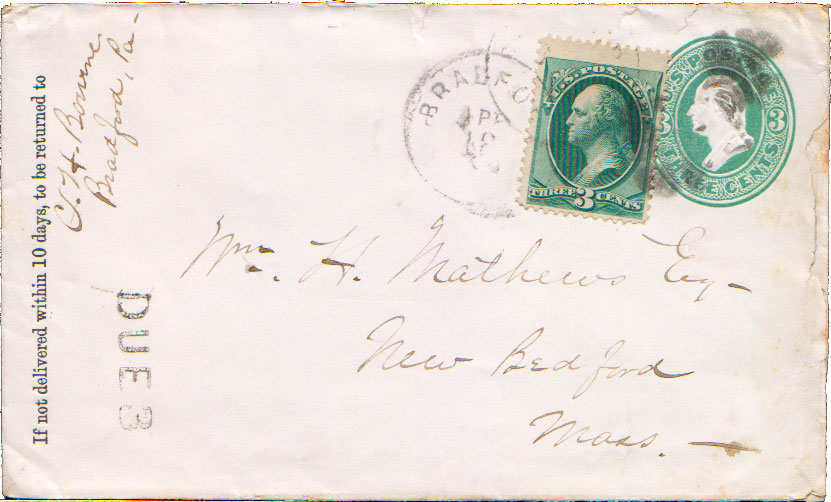 If not delivered within 10 days, to be returned to
C. H. Bourne
Bradford, Pa-
DUE 3
BRADFO
AP
U.S. POSTAGE
THREE 3 CENTS
U.S. POSTAGE
3 3
THREE CENTS
Wm. H. Mathews Esq-
New Bedford
Mass. -